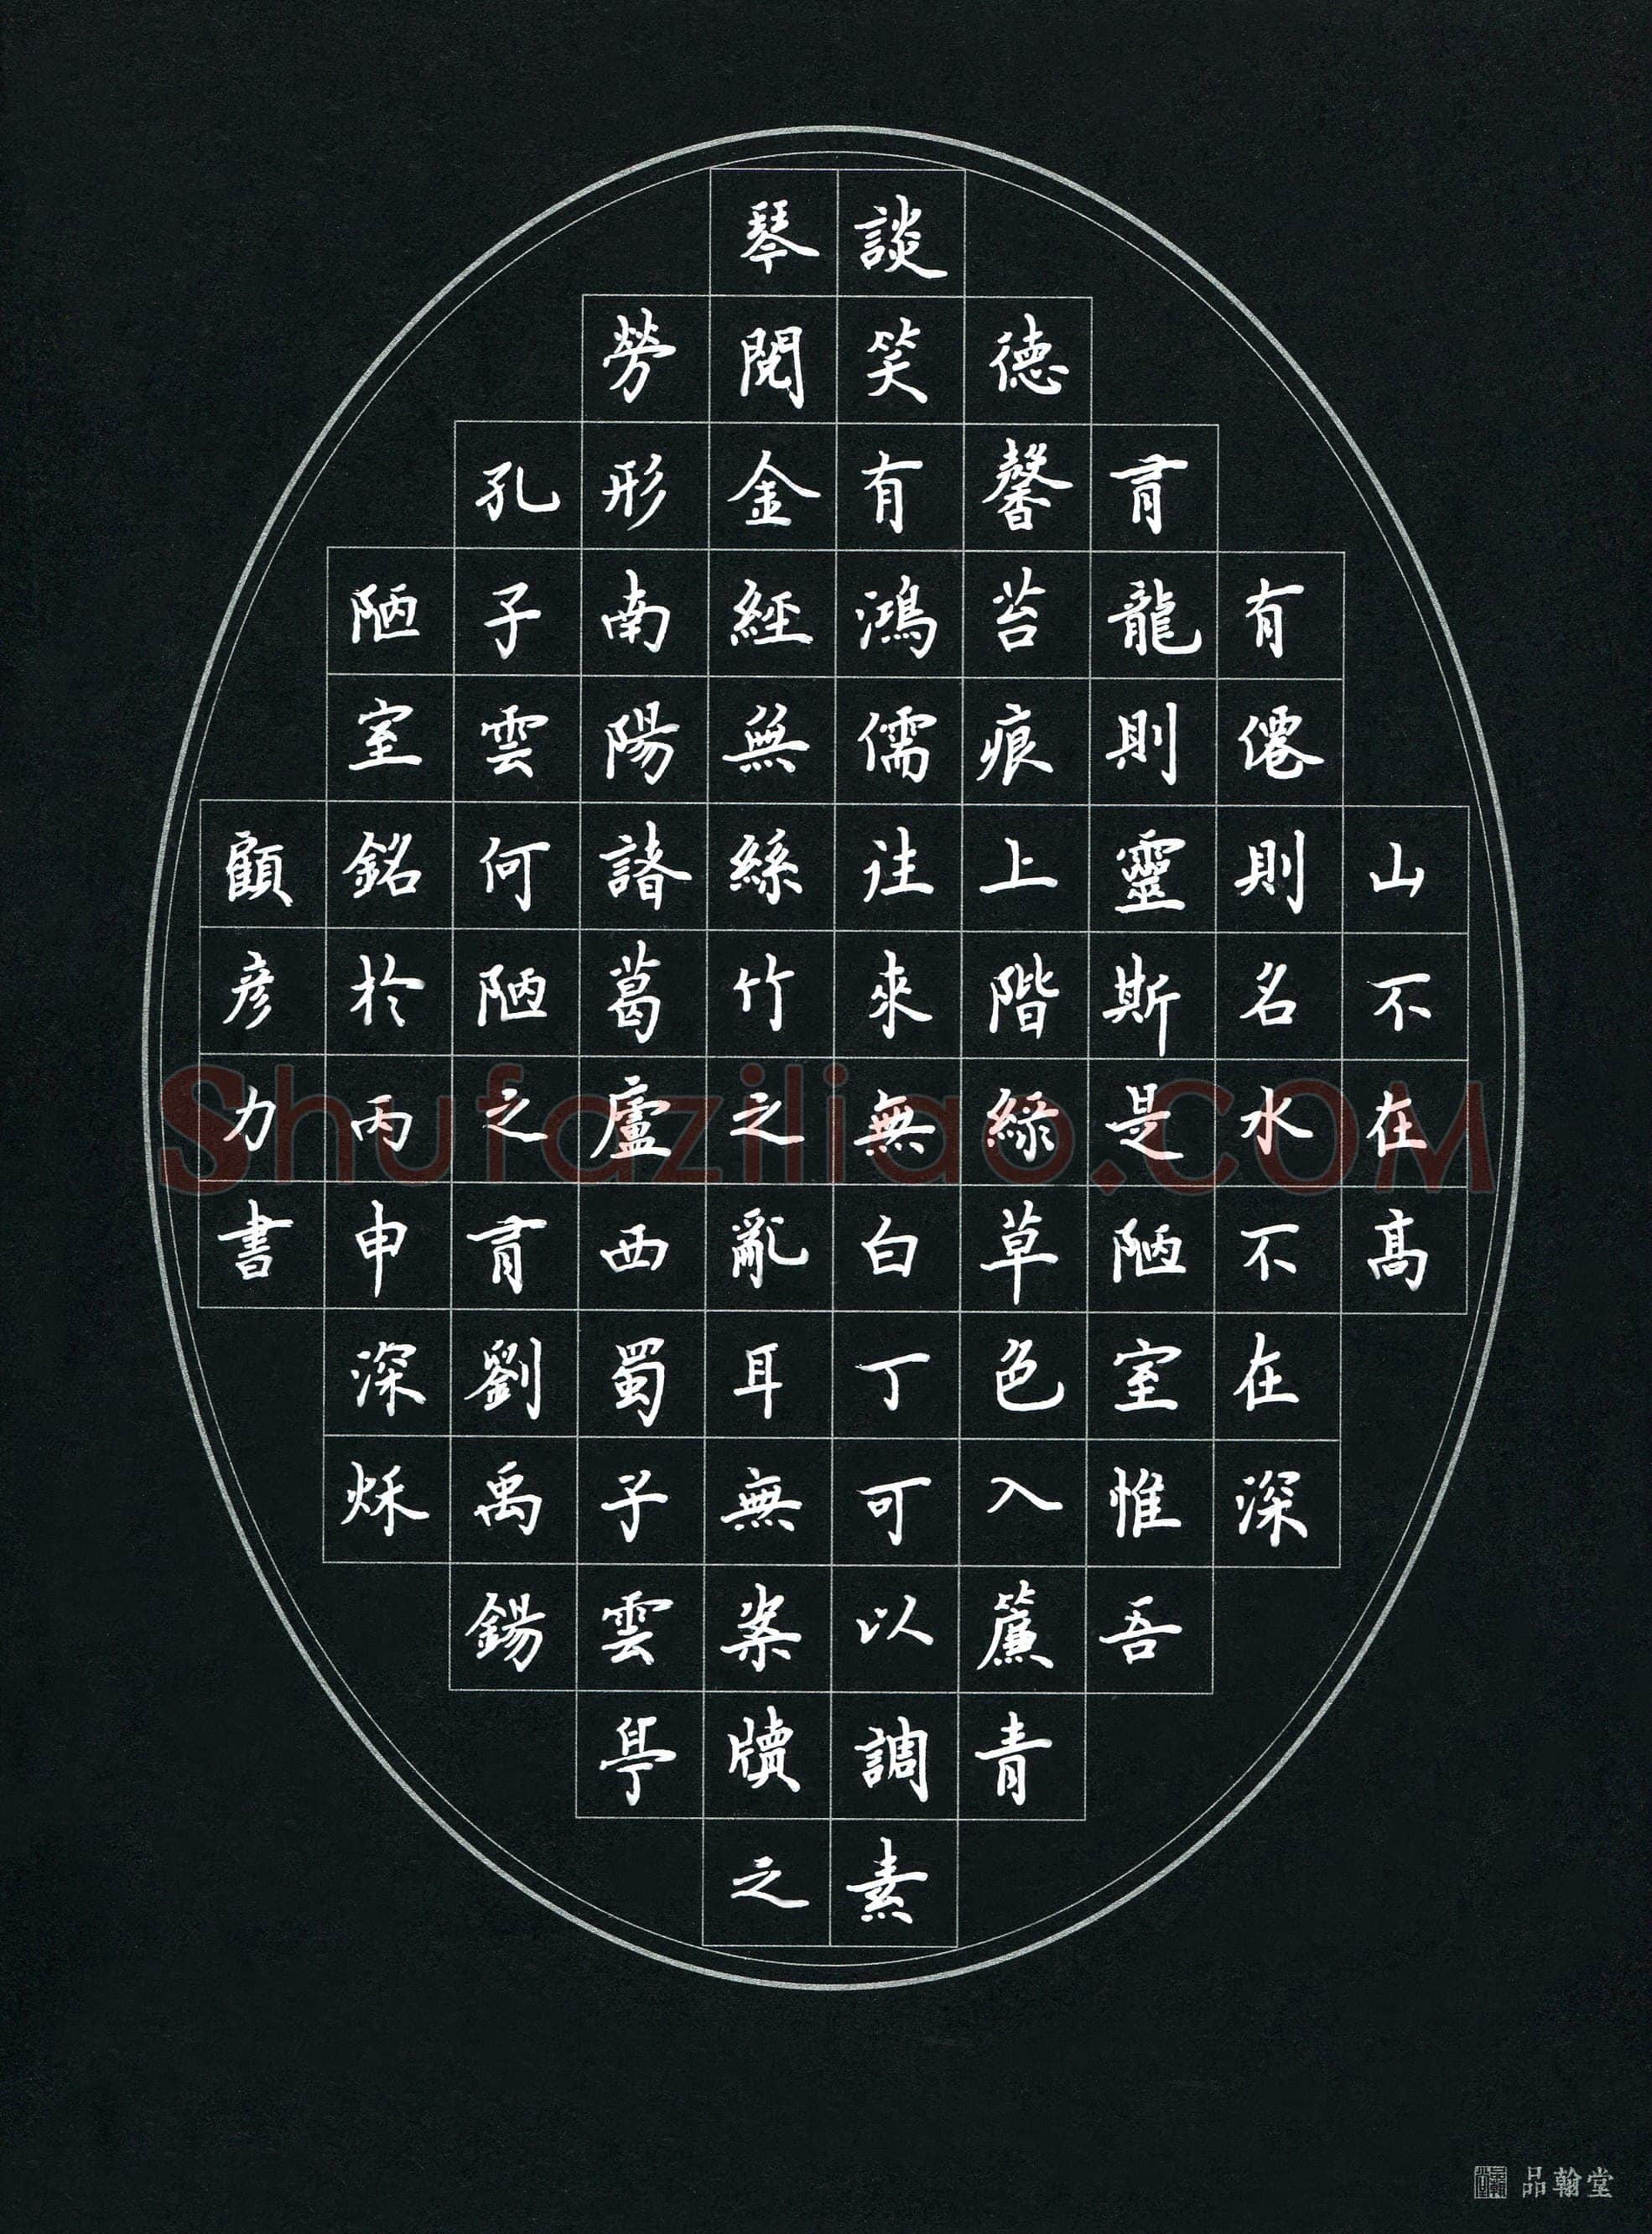 山不在髙
有僊則名水不在深
有龍則靈斯是陋室惟吾
德馨苔痕上階綠草色入簾青
談笑有鴻儒往來無白丁可以調素
琴閱金經無絲竹之亂耳無案牘之
勞形南陽諸葛廬西蜀子雲亭
孔子雲何陋之有劉禹錫
陋室銘於丙申深秌
顧彥力書
Shufaziliao.COM
品翰堂